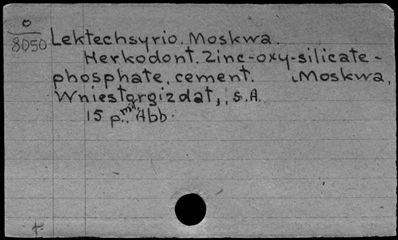 o
8050 Lektechsyrio. Moskwa.
Herkodont. Zinc-oxy-silicate-
phosphate, cement. Moskwa,
Wniestorgizdat, s.A.
15 p. mit Abb.